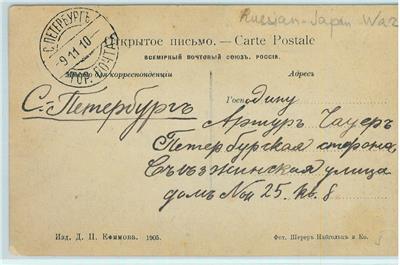 Russian-Japan War
С.ПЕТЕРБУРГЪ
9·11·10
ГОР. ПОЧТА
Открытое письмо. — Carte Postale
ВСЕМІРНЫЙ ПОЧТОВЫЙ СОЮЗЪ. РОССІЯ.
Мѣсто для корреспонденціи
Адресъ
С.-Петербургъ
Господину
Артуръ Чауеръ
Петербургская сторона,
Съѣзжинская улица
домъ No 25. кв. 8
Изд. Д. П. Ефимова. 1905.
Фот. Шереръ Набгольцъ и Ко.